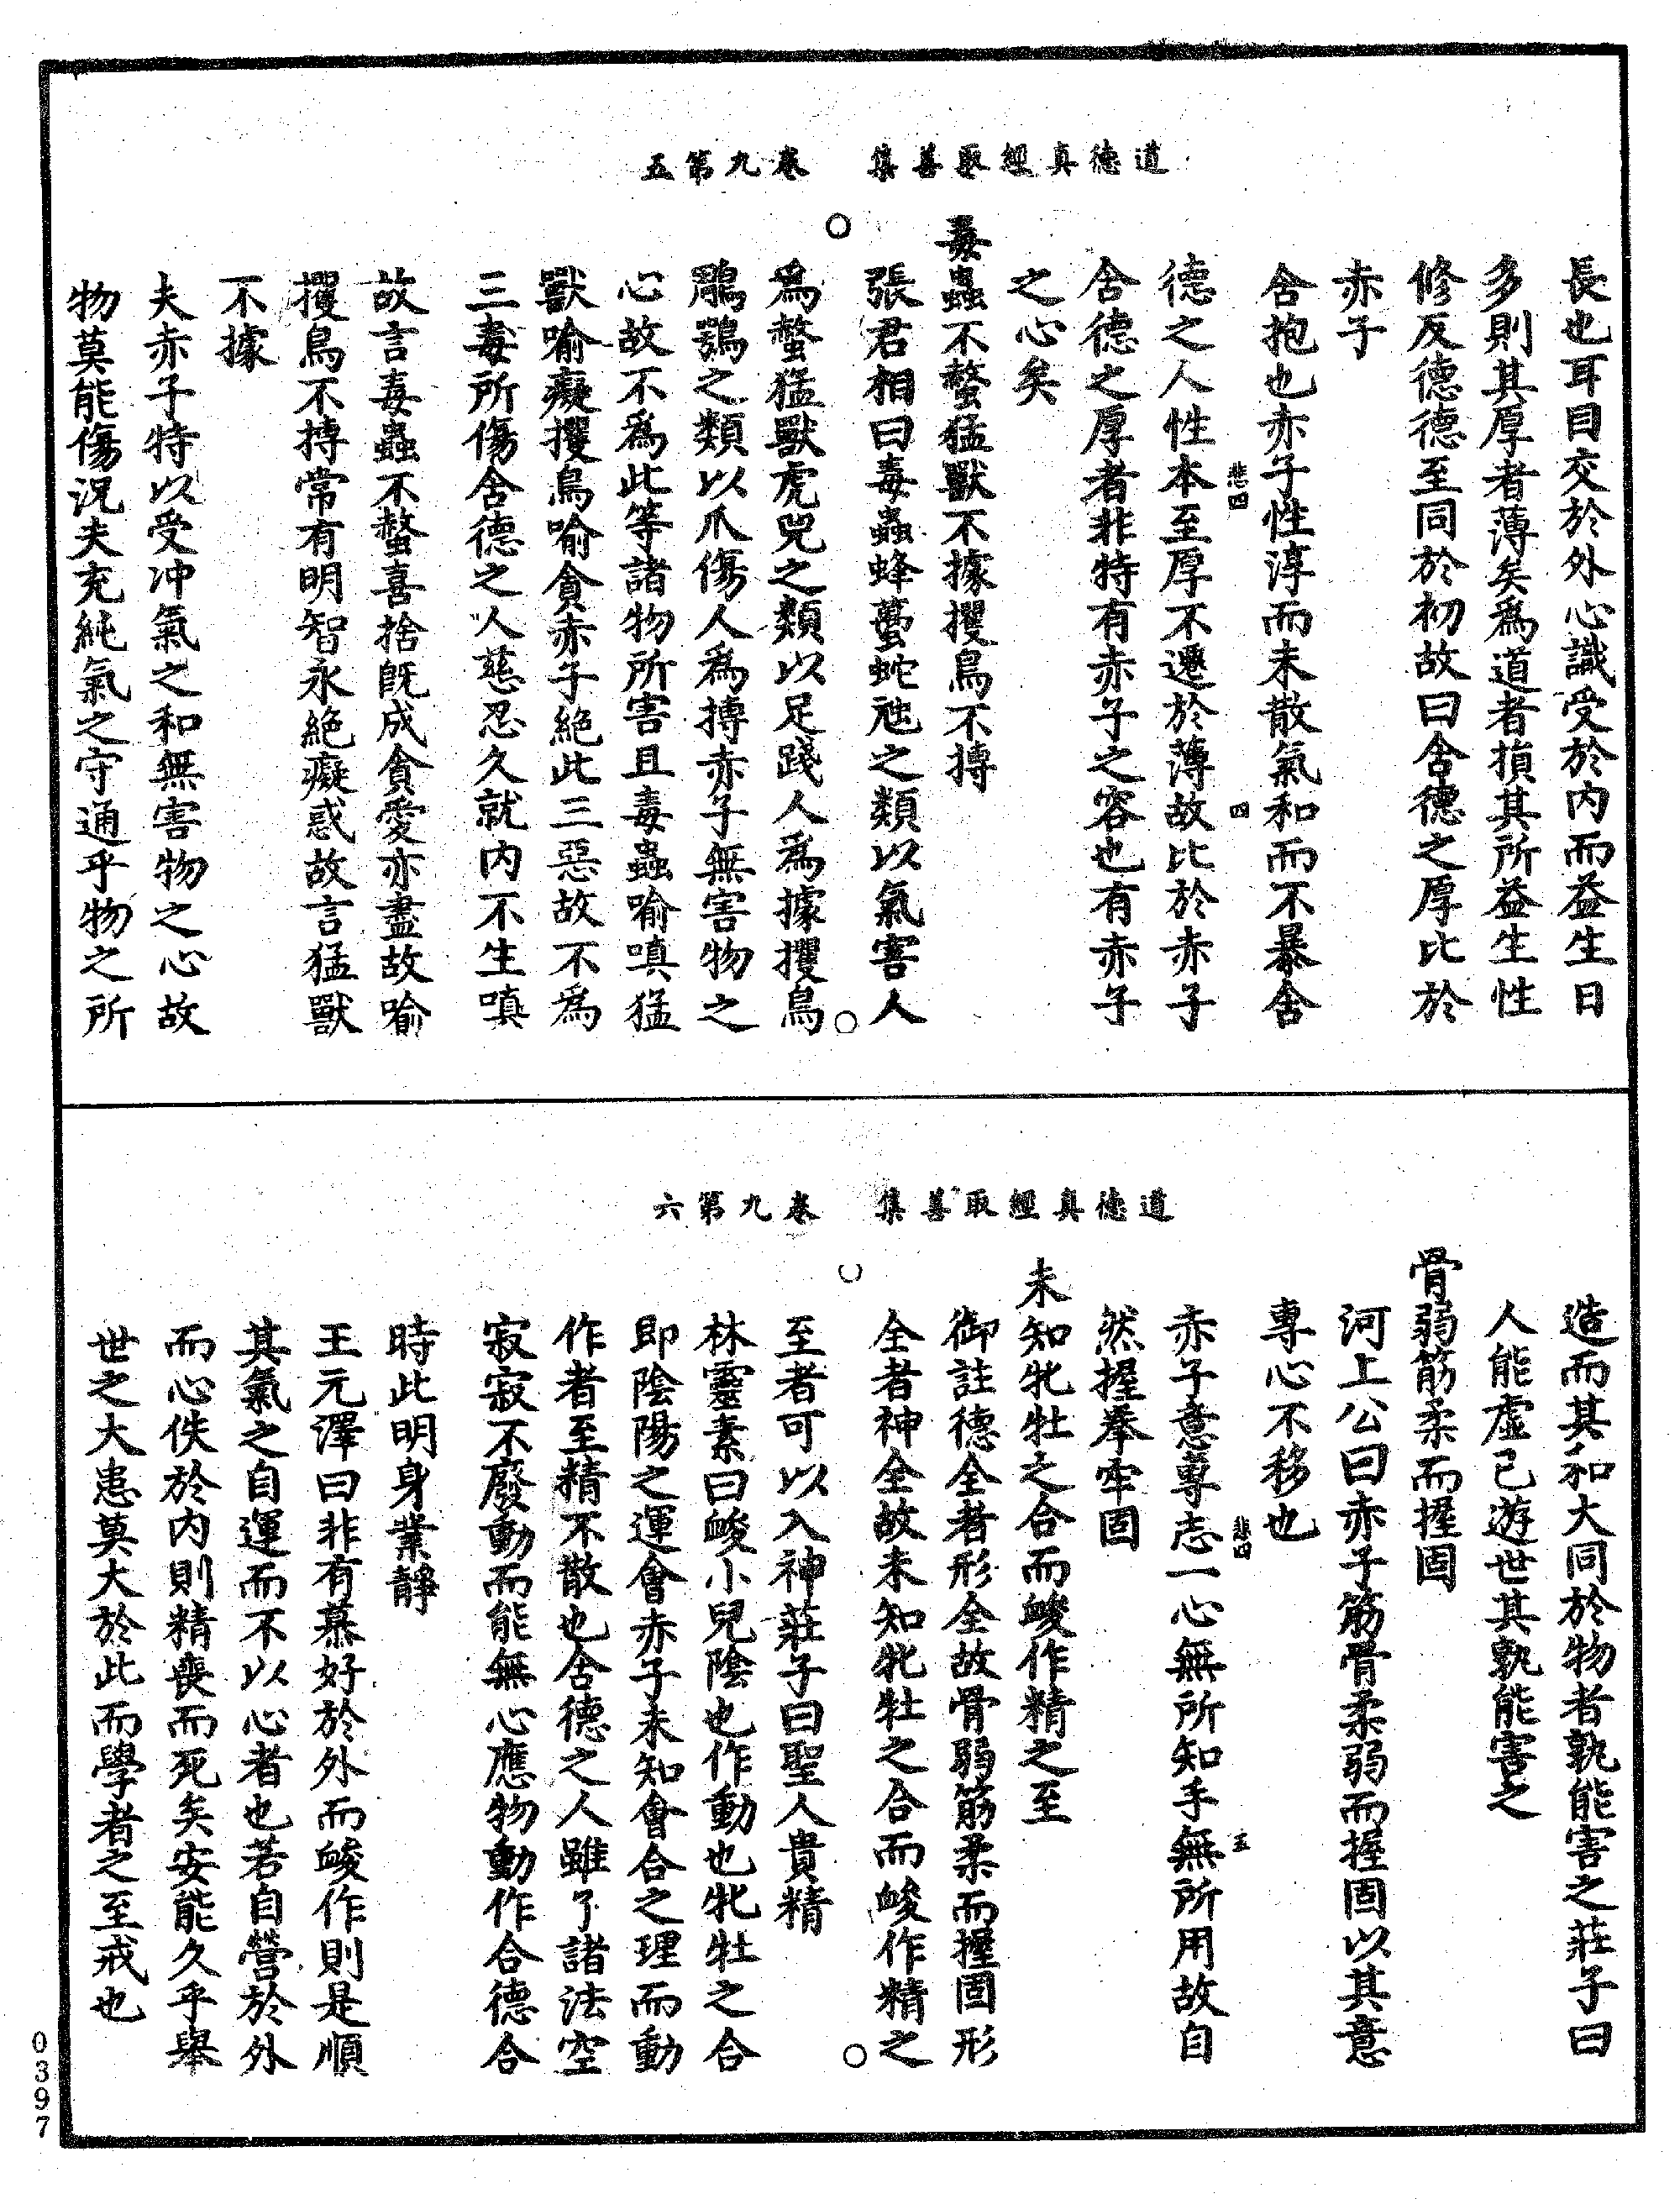 道德真經取善集　卷九第五
長也耳目交於外心識受於內而益生日
多則其厚者薄矣為道者損其所益生性
修反德德至同於初故曰含德之厚比於
赤子
含抱也赤子性淳而未散氣和而不暴含
悲四　四
德之人性本至厚不遷於薄故比於赤子
含德之厚者非特有赤子之容也有赤子
之心矣
毒蟲不螫猛獸不據攫鳥不搏
張君相曰毒蟲蜂蠆蛇虺之類以氣害人
為螫猛獸虎兕之類以足踐人為據攫鳥
鵰鶚之類以爪傷人為搏赤子無害物之
心故不為此等諸物所害且毒蟲喻嗔猛
獸喻癡攫鳥喻貪赤子絕此三惡故不為
三毒所傷含德之人慈忍久就內不生嗔
故言毒蟲不螫喜捨既成貪愛亦盡故喻
攫鳥不搏常有明智永絕癡惑故言猛獸
不據
夫赤子特以受沖氣之和無害物之心故
物莫能傷況夫充純氣之守通乎物之所
道德真經取善集　卷九第六
造而其和大同於物者孰能害之莊子曰
人能虛己遊世其孰能害之
骨弱筋柔而握固
河上公曰赤子筋骨柔弱而握固以其意
專心不移也
悲四　五
赤子意專志一心無所知手無所用故自
然握拳牢固
未知牝牡之合而峻作精之至
御註德全者形全故骨弱筋柔而握固形
全者神全故未知牝牡之合而峻作精之
至者可以入神莊子曰聖人貴精
林靈素曰峻小兒陰也作動也牝牡之合
即陰陽之運會赤子未知會合之理而動
作者至精不散也含德之人雖了諸法空
寂寂不廢動而能無心應物動作合德合
時此明身業靜
王元澤曰非有慕好於外而峻作則是順
其氣之自運而不以心者也若自營於外
而心佚於內則精喪而死矣安能久乎舉
世之大患莫大於此而學者之至戒也
0397